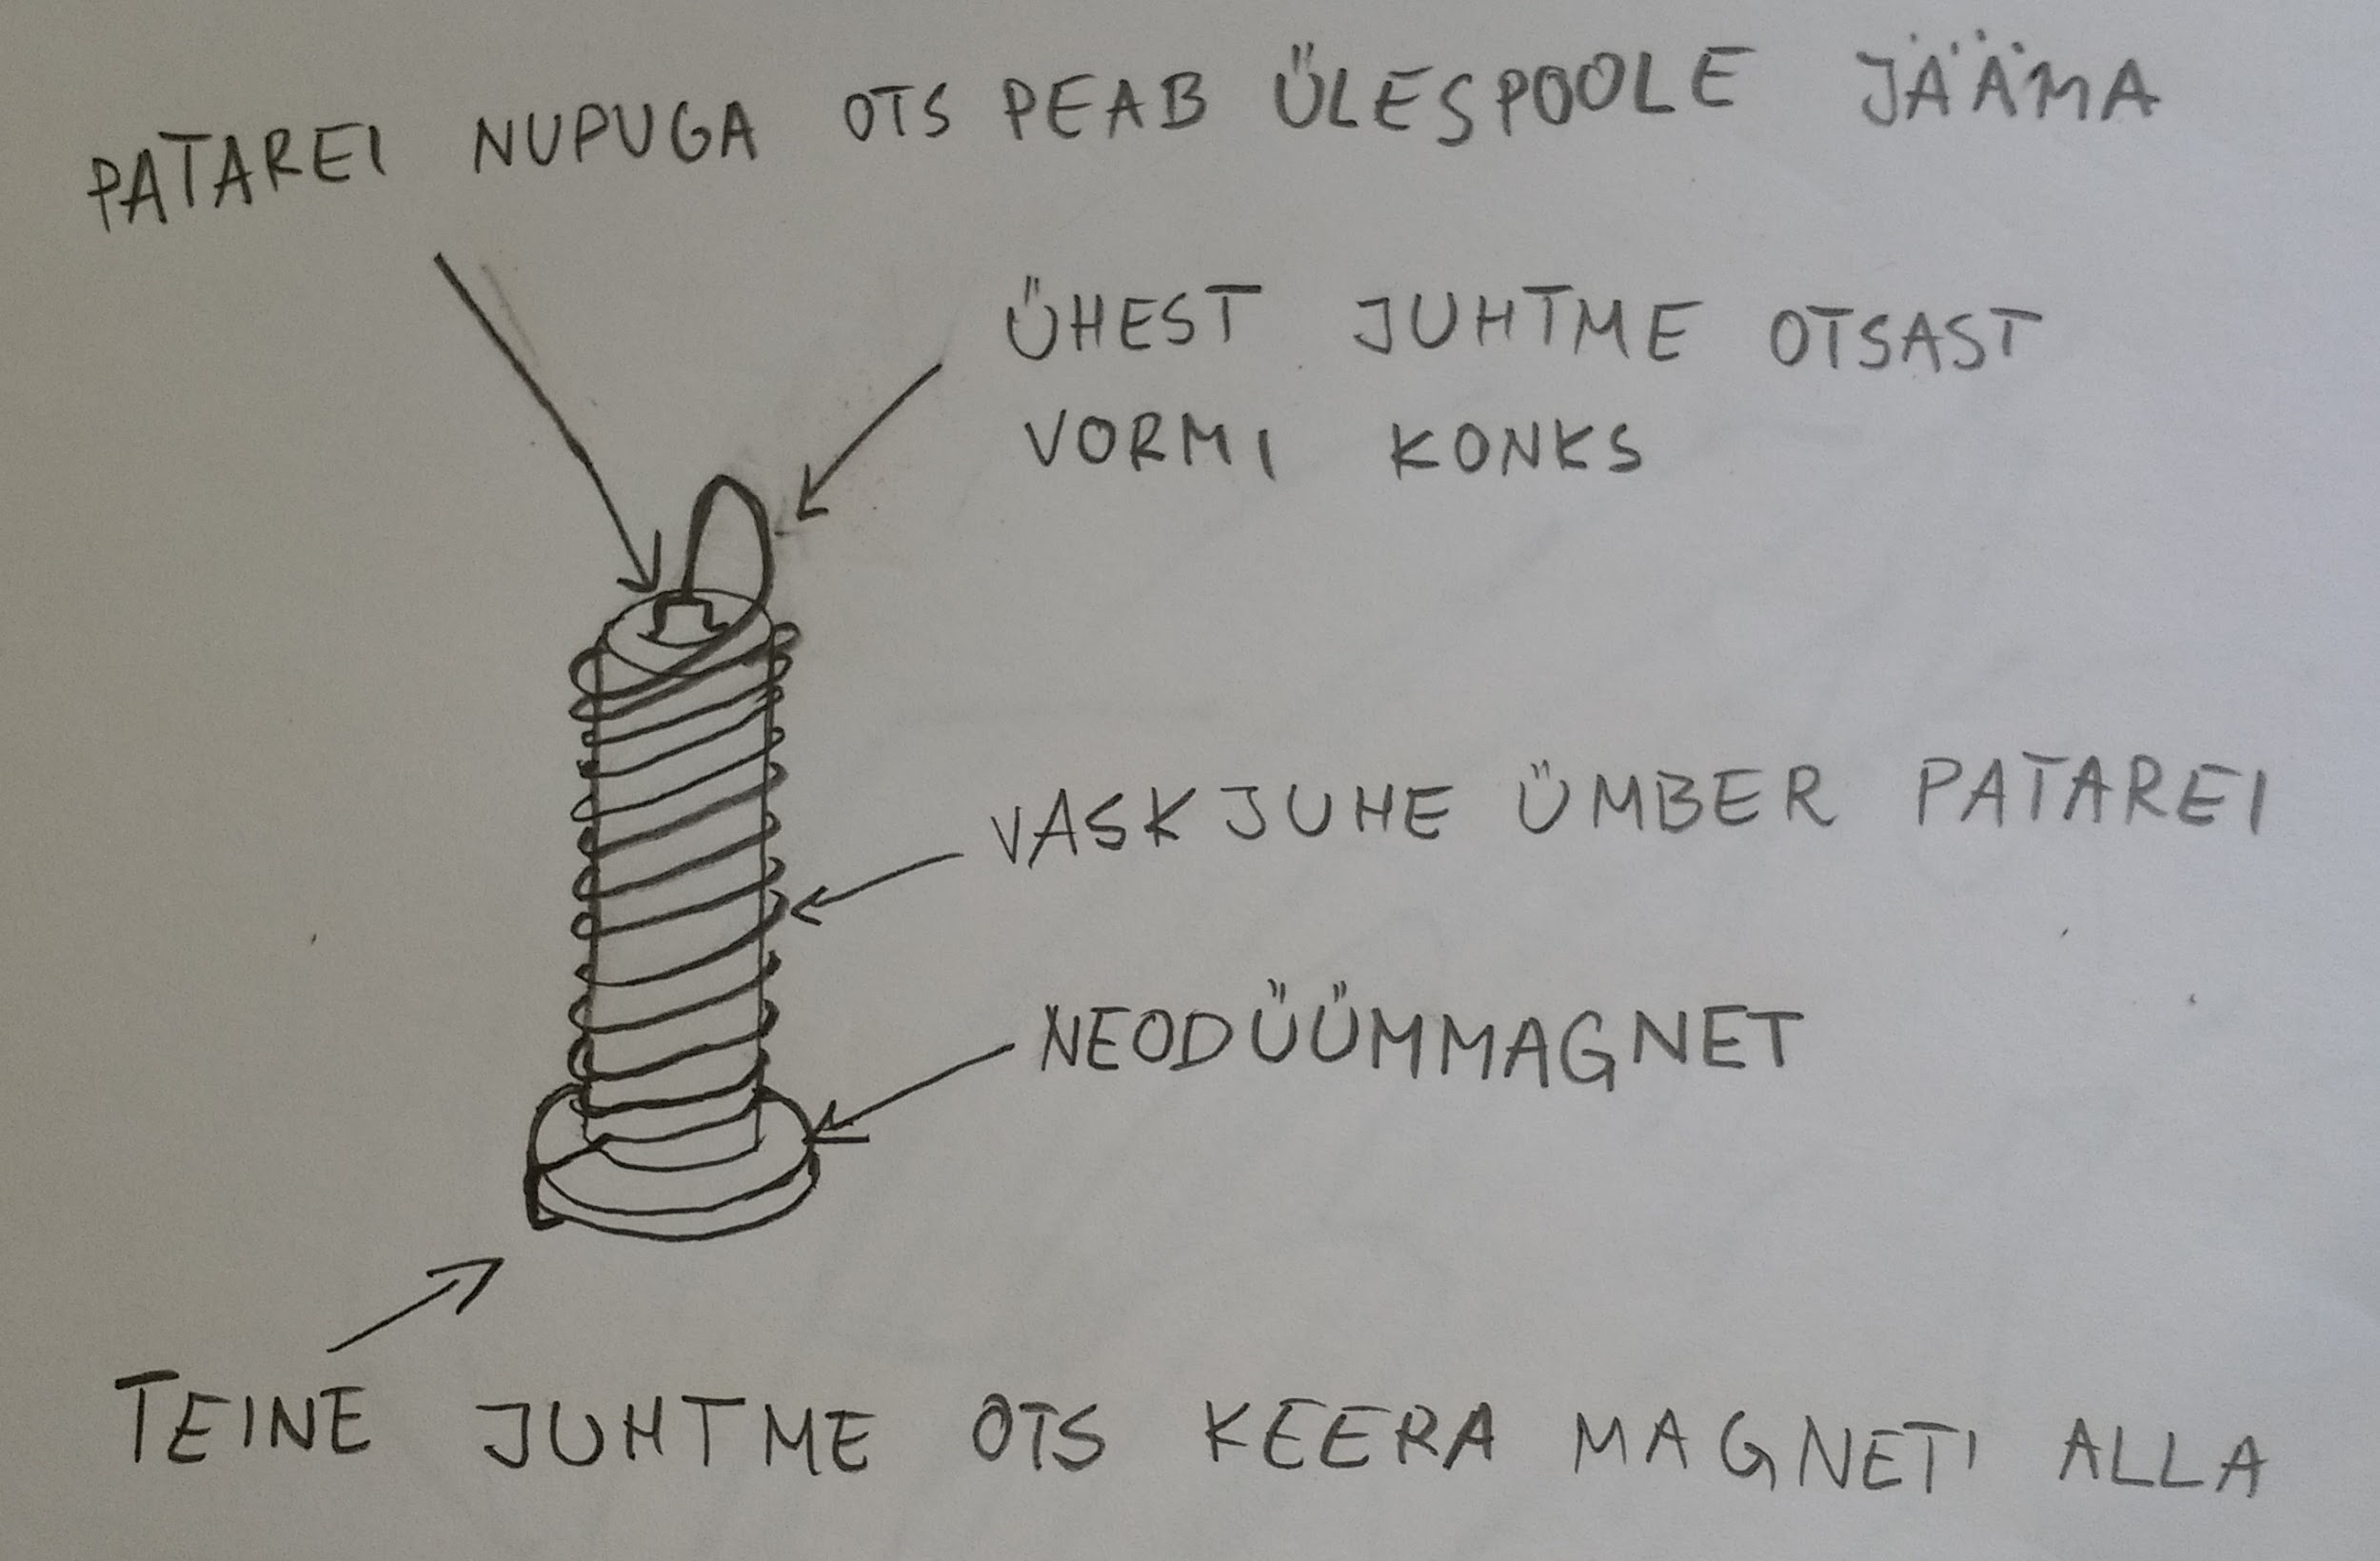 PATAREI NUPUGA OTS PEAB ÜLESPOOLE JÄÄMA
ÜHEST JUHTME OTSAST
VORMI KONKS
VASKJUHE ÜMBER PATAREI
NEODÜÜMMAGNET
TEINE JUHTME OTS KEERA MAGNETI ALLA